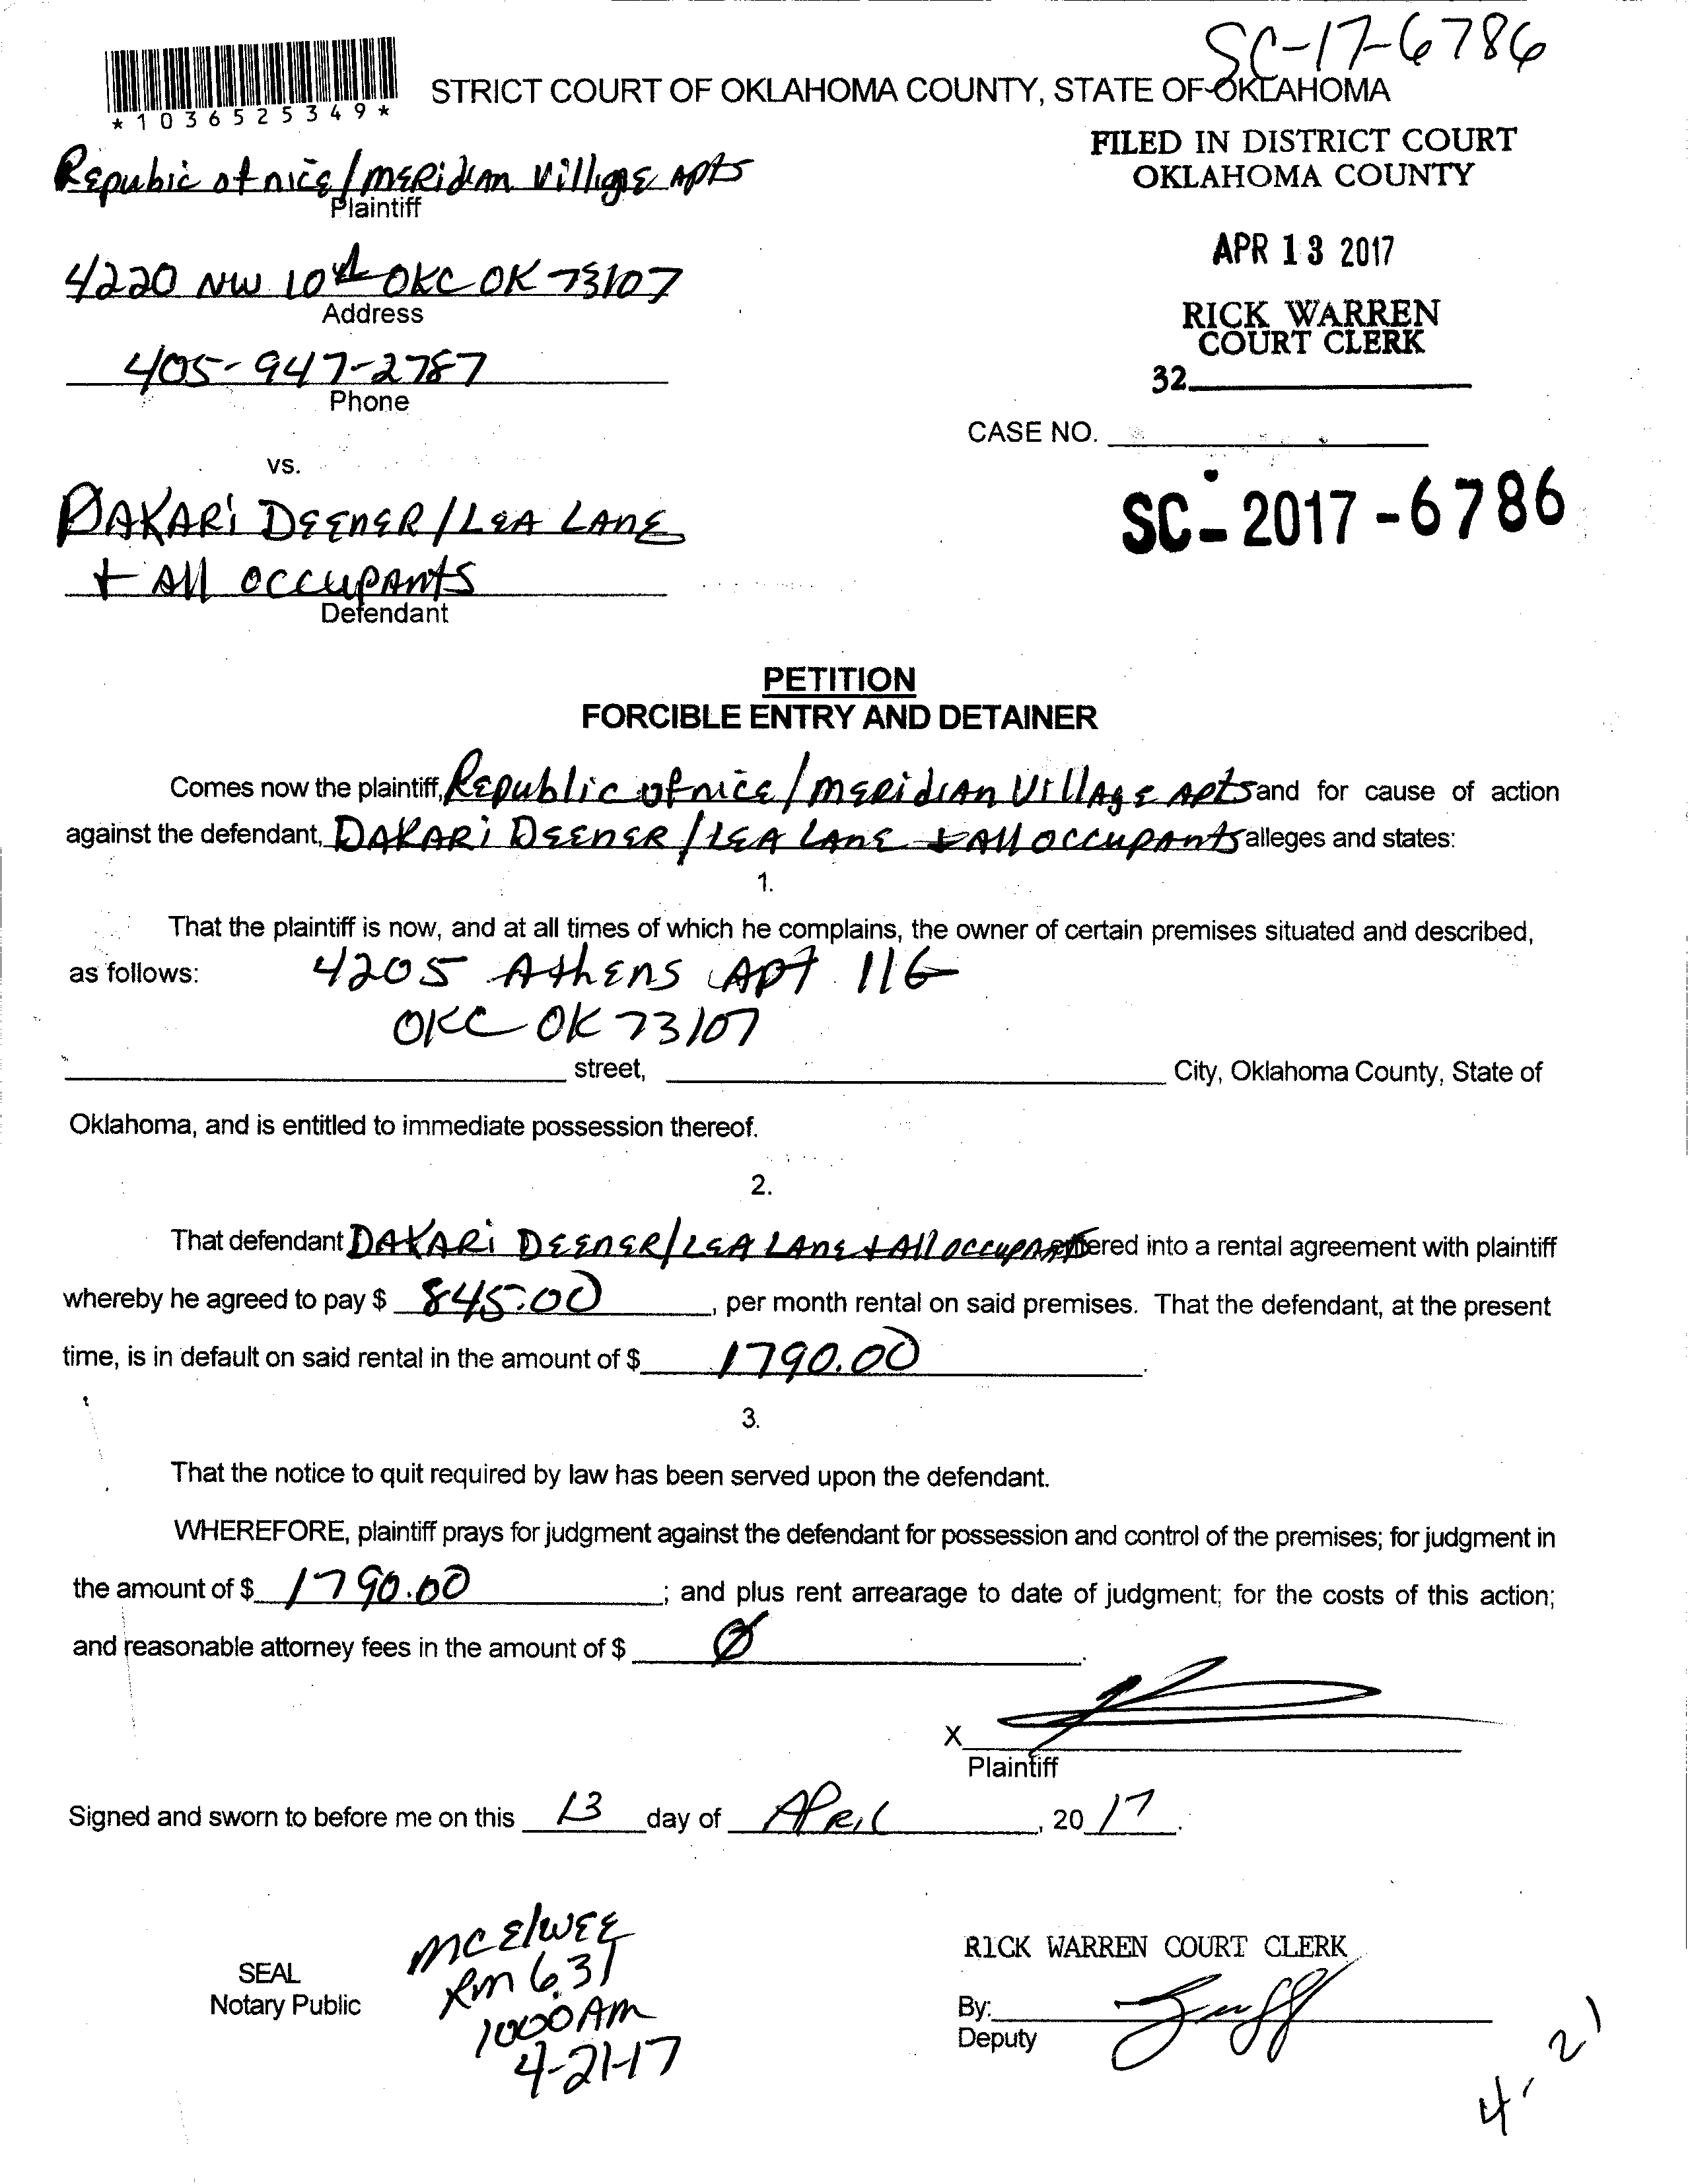 SC-17-6786
*1036525349*
STRICT COURT OF OKLAHOMA COUNTY, STATE OF OKLAHOMA
FILED IN DISTRICT COURT
OKLAHOMA COUNTY
Repubic of nice / Meridian Village Apts
Plaintiff
APR 13 2017
4220 NW 10th OKC OK 73107
Address
RICK WARREN
COURT CLERK
405-947-2787
Phone
32
CASE NO.
vs.
SC-2017-6786
DAKARi DEENER / LEA LANE
+ All occupants
Defendant
PETITION
FORCIBLE ENTRY AND DETAINER
Comes now the plaintiff, Republic of nice / Meridian Village Apts and for cause of action
against the defendant, DAKARi DEENER / LEA LANE + All occupants alleges and states:
1.
That the plaintiff is now, and at all times of which he complains, the owner of certain premises situated and described,
as follows: 4205 Athens Apt 116
OKC OK 73107
street, City, Oklahoma County, State of
Oklahoma, and is entitled to immediate possession thereof.
2.
That defendant DAKARi DEENER / LEA LANE + All occupants entered into a rental agreement with plaintiff
whereby he agreed to pay $ 845.00, per month rental on said premises. That the defendant, at the present
time, is in default on said rental in the amount of $ 1790.00.
3.
That the notice to quit required by law has been served upon the defendant.
WHEREFORE, plaintiff prays for judgment against the defendant for possession and control of the premises; for judgment in
the amount of $ 1790.00; and plus rent arrearage to date of judgment; for the costs of this action;
and reasonable attorney fees in the amount of $ Ø.
X
Plaintiff
Signed and sworn to before me on this 13 day of April, 20 17.
McElwee
Rm 631
1000 AM
4-21-17
SEAL
Notary Public
RICK WARREN COURT CLERK
By:
Deputy
4-21